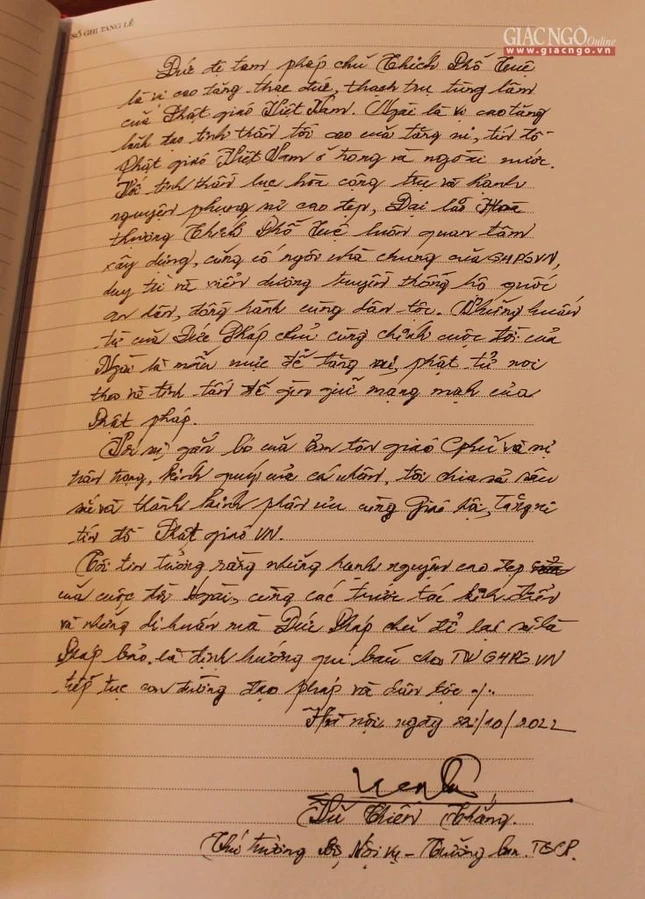 SỔ GHI TANG LỄ
GIÁC NGỘ Online
www.giacngo.vn
Đức đệ tam pháp chủ Thích Phổ Tuệ
là vị cao tăng thạc đức, thạch trụ tùng lâm
của Phật giáo Việt Nam. Ngài là vị cao tăng
lãnh đạo tinh thần tối cao của tăng ni, tín đồ
Phật giáo Việt Nam ở trong và ngoài nước.
Với tinh thần lục hòa cộng trụ và hạnh
nguyện phụng sự cao đẹp, Đại lão Hòa
thượng Thích Phổ Tuệ luôn quan tâm
xây dựng, củng cố ngôi nhà chung của GHPGVN,
duy trì và xiển dương truyền thống hộ quốc
an dân, đồng hành cùng dân tộc. Những huấn
từ của Đức Pháp chủ cùng chính cuộc đời của
Ngài là mẫu mực để tăng ni, phật tử noi
theo và tinh tấn để gìn giữ mạng mạch của
Phật pháp.
Với sự gắn bó của Ban tôn giáo Cphủ và sự
trân trọng, kính quý của cá nhân, tôi chia sẻ sâu
sắc và thành kính phân ưu cùng Giáo hội, Tăng ni
tín đồ Phật giáo VN.
Tôi tin tưởng rằng những hạnh nguyện cao đẹp
của cuộc đời Ngài, cùng các trước tác kinh điển
và những di huấn mà Đức Pháp chủ để lại sẽ là
Pháp bảo, là định hướng quí báu cho TW GHPGVN
tiếp tục con đường đạo pháp và dân tộc ./.
Hà nội, ngày 22/10/2022
Vũ Chiến Thắng.
Thứ trưởng Bộ Nội vụ - Trưởng ban TGCP.